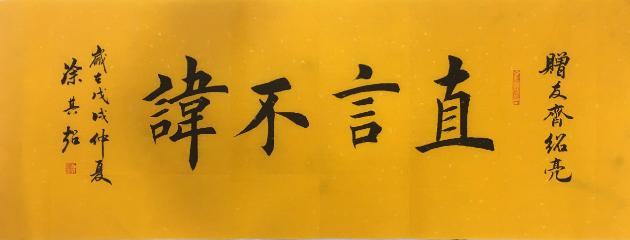 贈友齊紹亮
直言不諱
歲在戊戌仲夏
徐其超